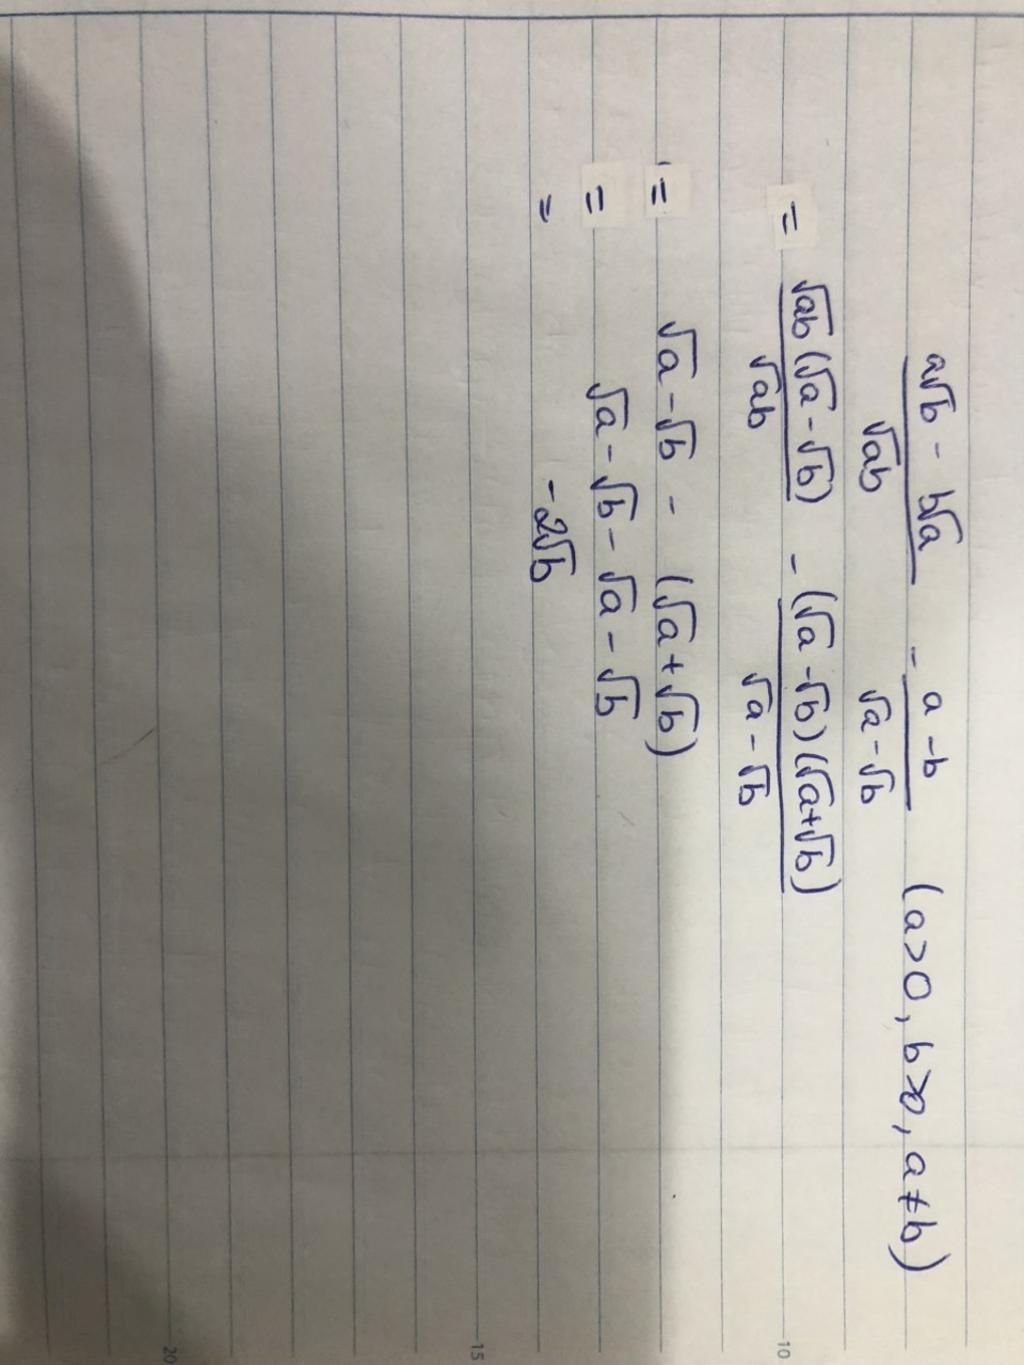 a√b - b√a / √ab - a - b / √a - √b (a>0, b>0, a≠b)
= √ab (√a - √b) / √ab - (√a - √b) (√a+√b) / √a - √b
= √a - √b - (√a + √b)
= √a - √b - √a - √b
= -2√b
10
15
20